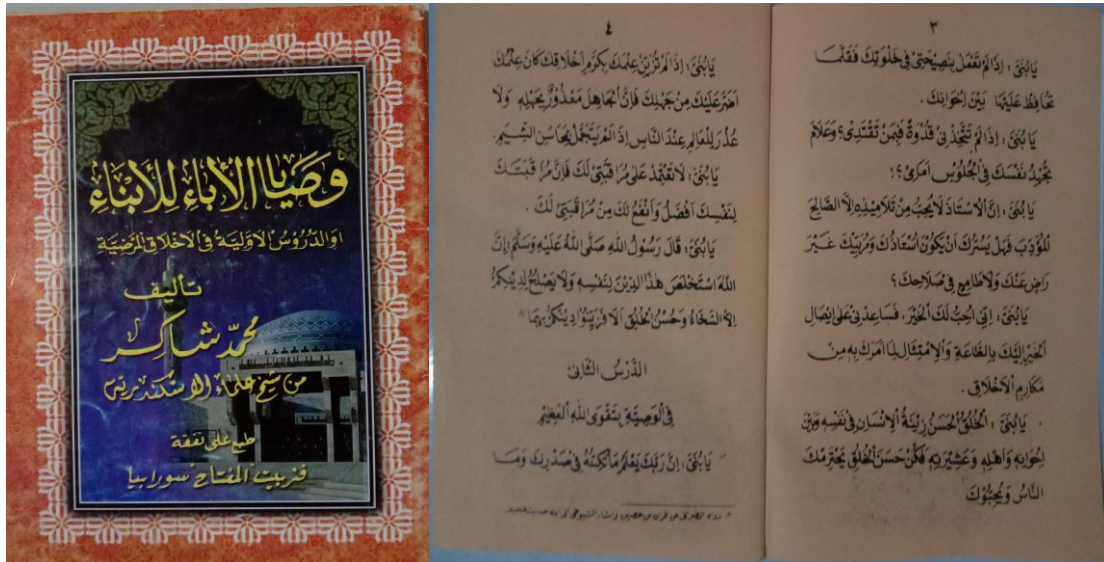 وَصَايَا الْأٰبَاءِ لِلْأَبْنَاءِ
اَوِ الدُّرُوْسُ الْاَوَّلِيَّةُ فِى الْاَخْلَاقِ الْمَرْضِيَّةِ
تأليف
محمّد شاكر
من شيخ علماء الاسكندرية
طبع على نفقة
فنربيت المفتاح سورابيا
٣
يَابُنَيَّ : اِذَا لَمْ تَعْمَلْ بِنَصِيْحَتِيْ فِيْ خَلْوَتِكَ فَقَلَّمَا
تُحَافِظُ عَلَيْهَا بَيْنَ اِخْوَانِكَ .
يَابُنَيَّ : اِذَا لَمْ تَتَّخِذْنِيْ قُدْوَةً فَبِمَنْ تَقْتَدِيْ؟ وَعَلَامَ
تُجْهِدُ نَفْسَكَ فِى الْجُلُوْسِ اَمَامِيْ؟!
يَابُنَيَّ : اِنَّ الْاُسْتَاذَ لَا يُحِبُّ مِنْ تَلَامِيْذِهِ اِلَّا الصَّالِحَ
الْمُؤَدَّبَ فَهَلْ يَسُرُّكَ اَنْ يَكُوْنَ اُسْتَاذُكَ وَمُرَبِّيْكَ غَيْرَ
رَاضٍ عَنْكَ وَلَا طَامِعٍ فِيْ صَلَاحِكَ؟
يَابُنَيَّ : اِنِّيْ اُحِبُّ لَكَ الْخَيْرَ، فَسَاعِدْنِيْ عَلٰى اِيْصَالِ
الْخَيْرِ اِلَيْكَ بِالطَّاعَةِ وَالْاِمْتِثَالِ لِمَا اٰمُرُكَ بِهِ مِنْ
مَكَارِمِ الْاَخْلَاقِ.
يَابُنَيَّ : اَلْخُلُقُ الْحَسَنُ زِيْنَةُ الْاِنْسَانِ فِيْ نَفْسِهِ وَبَيْنَ
اِخْوَانِهِ وَاَهْلِهِ وَعَشِيْرَتِهِ فَكُنْ حَسَنَ الْخُلُقِ يَحْتَرِمْكَ
النَّاسُ وَيُحِبُّوْكَ
٤
يَابُنَيَّ : اِذَا لَمْ تُزَيِّنْ عِلْمَكَ بِكَرَمِ اَخْلَاقِكَ كَانَ عِلْمُكَ
اَضَرَّ عَلَيْكَ مِنْ جَهْلِكَ فَاِنَّ الْجَاهِلَ مَعْذُوْرٌ بِجَهْلِهِ وَلَا
عُذْرَ لِلْعَالِمِ عِنْدَ النَّاسِ اِذَا لَمْ يَتَجَمَّلْ بِمَحَاسِنِ الشِّيَمِ.
يَابُنَيَّ : لَا تَعْتَمِدْ عَلٰى مُرَاقَبَتِيْ لَكَ فَاِنَّ مُرَاقَبَتَكَ
لِنَفْسِكَ اَفْضَلُ وَاَنْفَعُ لَكَ مِنْ مُرَاقَبَتِيْ لَكَ .
يَابُنَيَّ : قَالَ رَسُوْلُ اللهِ صَلَّى اللهُ عَلَيْهِ وَسَلَّمَ: اِنَّ
اللهَ اسْتَخْلَصَ هٰذَا الدِّيْنَ لِنَفْسِهِ وَلَا يَصْلُحُ لِدِيْنِكُمْ
اِلَّا السَّخَاءُ وَحُسْنُ الْخُلُقِ اَلَا فَزَيِّنُوْا دِيْنَكُمْ بِهِمَا *
الدَّرْسُ الثَّانِىْ
فِى الْوَصِيَّةِ بِتَقْوَى اللهِ الْعَظِيْمِ
يَابُنَيَّ : اِنَّ رَبَّكَ يَعْلَمُ مَا تُكِنُّهُ فِيْ صَدْرِكَ وَمَا
* رواه الطبرانى عن عمران بن حصين واشار السيوطى